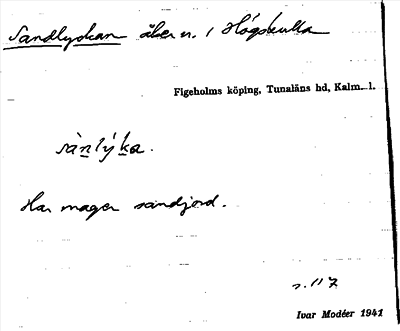 Sandlyckan åker n. i Högskulla
Figeholms köping, Tunaläns hd, Kalm. l.
sànlýka.
Har mager sandjord.
s. 117
Ivar Modéer 1941